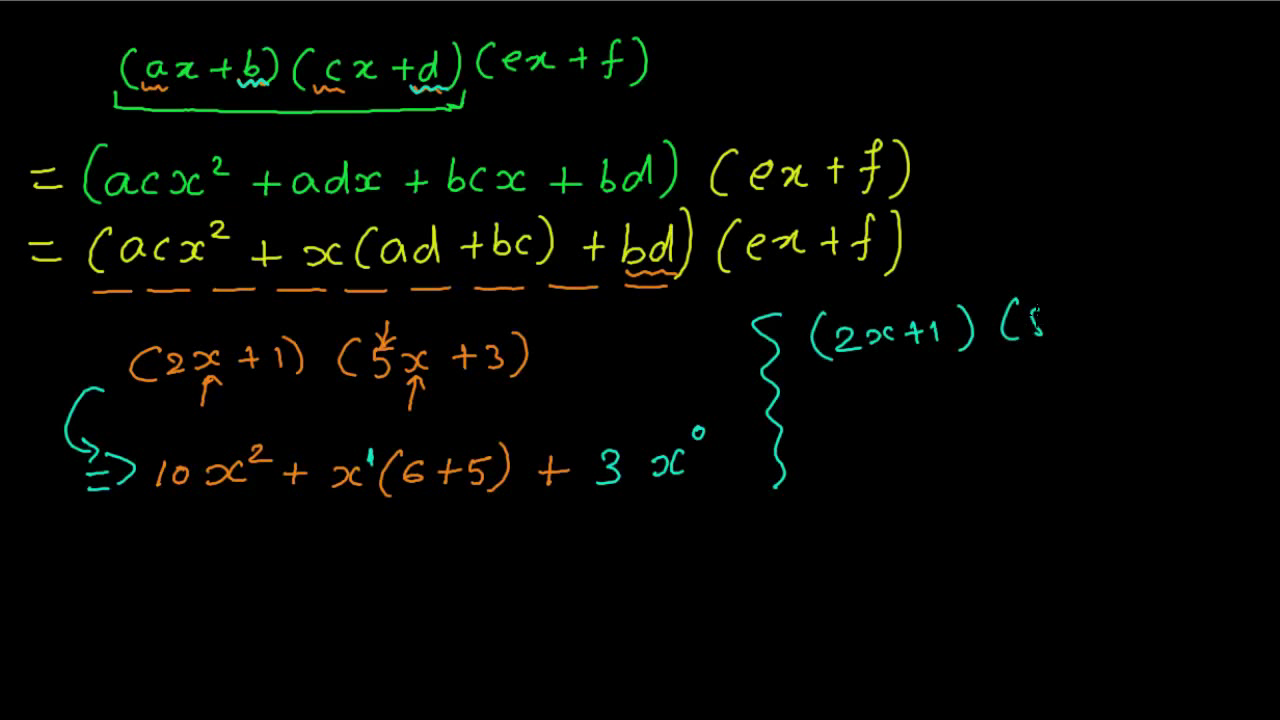 (ax+b)(cx+d)(ex+f)
=(acx²+adx+bcx+bd)(ex+f)
=(acx²+x(ad+bc)+bd)(ex+f)
(2x+1)(5x+3)
(2x+1)(
=> 10x²+x¹(6+5)+3x⁰